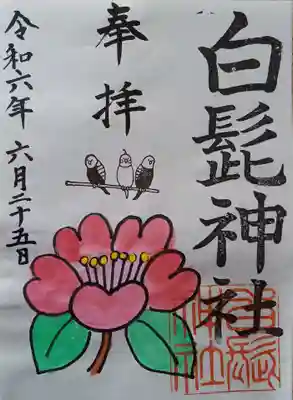 白髭神社
奉拝
令和六年 六月二十五日
白髭神社